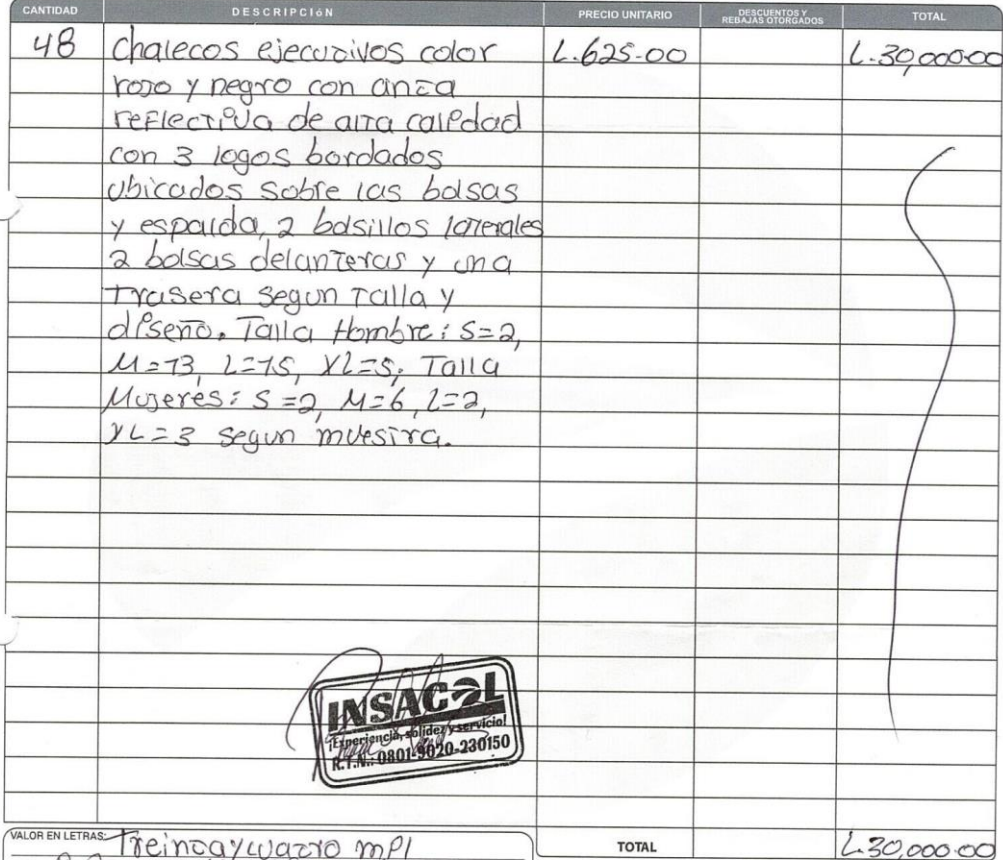 CANTIDAD DESCRIPCIóN PRECIO UNITARIO DESCUENTOS Y REBAJAS OTORGADOS TOTAL
48 Chalecos ejecutivos color L.625.00 L.30,000.00
rojo y negro con cinta
reflectiva de alta calidad
con 3 logos bordados
ubicados sobre las bolsas
y espalda, 2 bolsillos laterales
2 bolsas delanteras y una
trasera segun talla y
diseño. Talla Hombre: S=2,
M=13, L=15, XL=5; Talla
Mujeres: S=2, M=6, L=2,
XL=3 segun muestra.
INSACOL
¡Experiencia, solidez y servicio!
R.T.N.: 0801-9020-230150
VALOR EN LETRAS: Treinta y cuatro mil TOTAL L.30,000.00